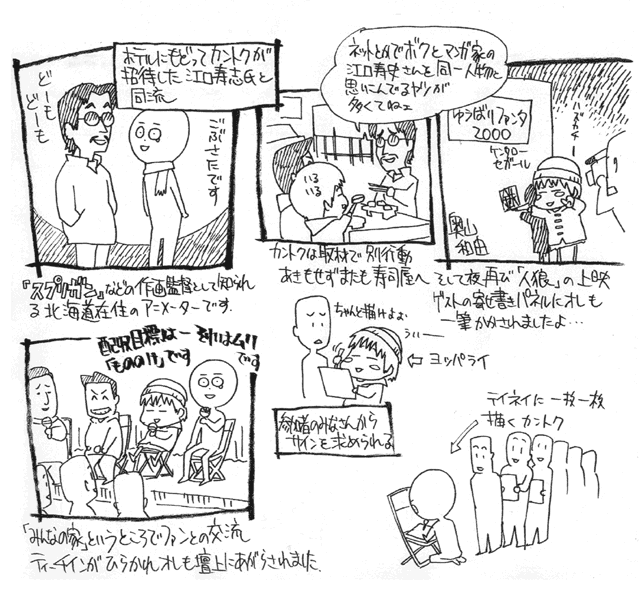 ホテルにもどってカントクが
招待した江口寿志氏と
合流
どーも
どーも
ごぶさたです
『スプリガン』などの作画監督として知られ
る北海道在住のアニメーターです.
ネットとかでボクとマンガ家の
江口寿史さんを同一人物と
思いこんでるヤツが
多くてねェ
いるいる
カントクは取材で別行動
あきもせずまたも寿司屋へ
ゆうばりファンタ
2000
ケンタロー
セガール
ハズカチー
奥山
和由
そして夜、再び「人狼」の上映
ゲストの寄せ書きパネルにオレも
一筆かかされましたよ…
配収目標は
「もののけ」です
それはムリ
です
「みんなの家」というところでファンとの交流
ティーチインがひらかれオレも壇上にあがらされました.
ちゃんと描けよぉ
うぃー
⇦ヨッパライ
参加者のみなさんから
サインを求められる
テイネイに一枚一枚
描くカントク